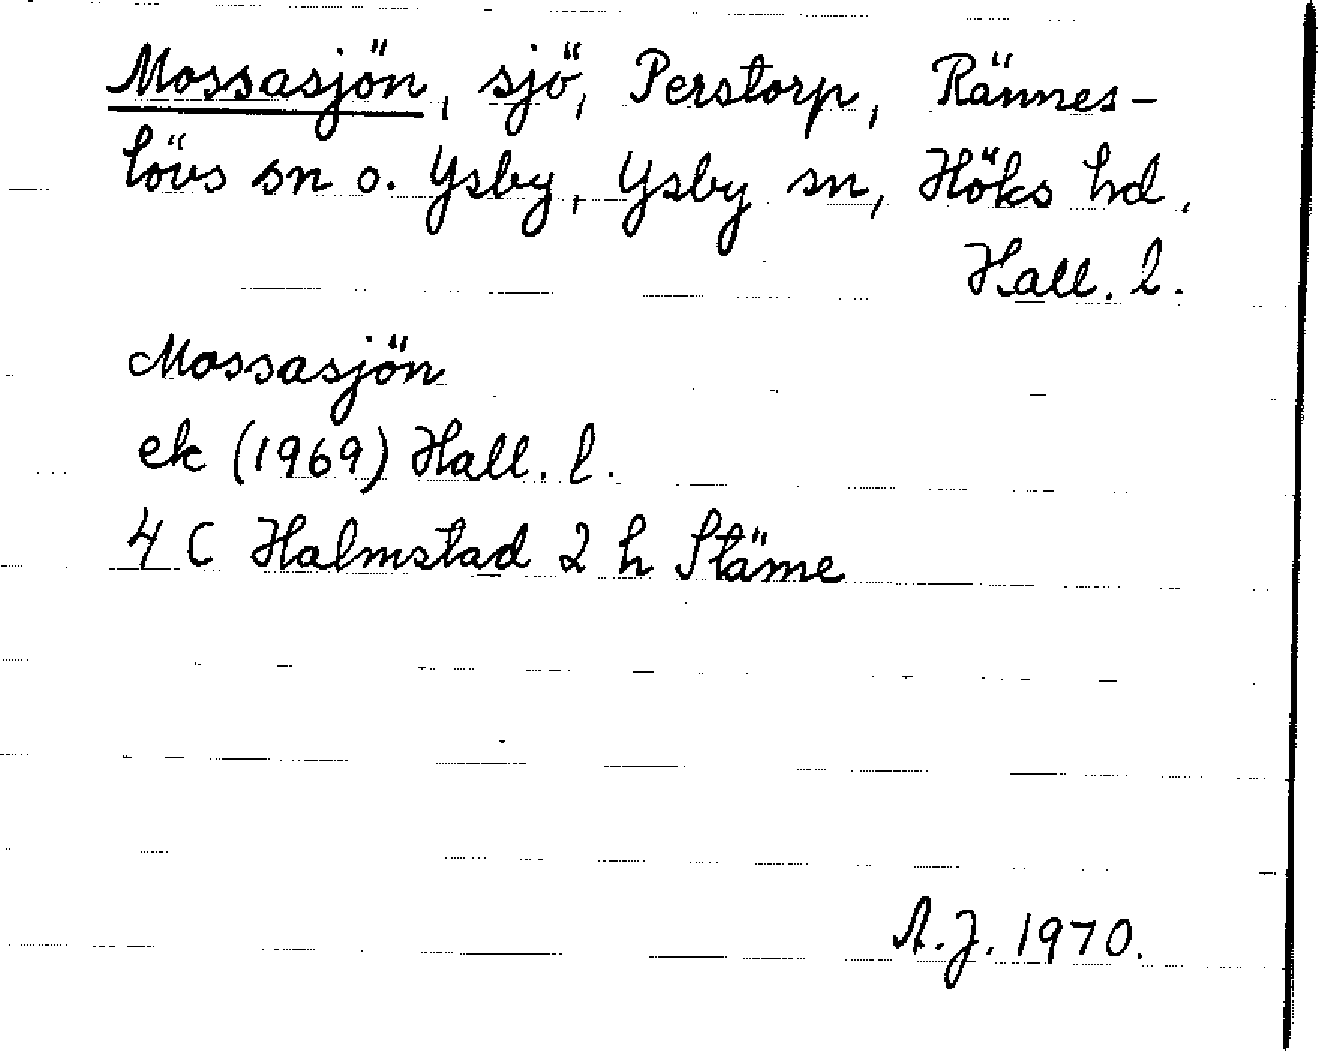 Mossasjön, sjö, Perstorp, Rännes-
lövs sn o. Ysby, Ysby sn, Höks hd.
Hall. l.
Mossasjön
ek (1969) Hall. l.
4 C Halmstad 2 h Stäme
A.J. 1970.